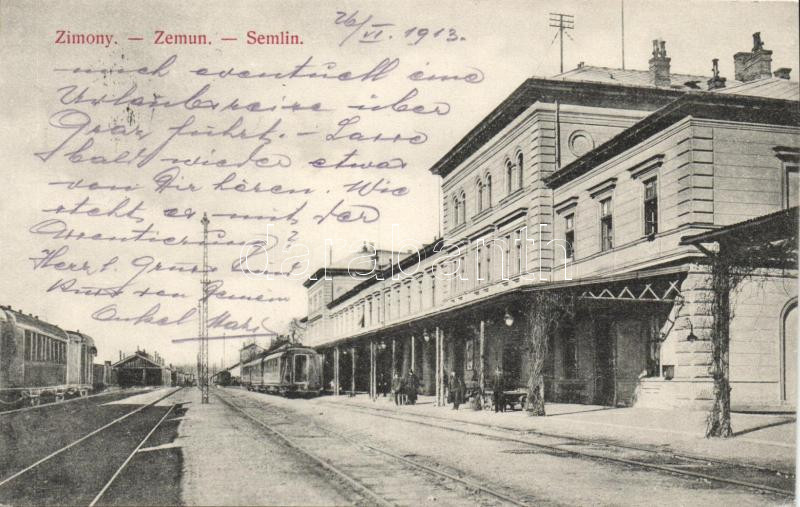 Zimony. — Zemun. — Semlin.
26/VI. 1913.
mich eventuell eine
Urlaubsreise über
Graz führt. - Lasse
bald wieder etwas
von Dir hören. Wie
steht es mit der
Assentierung?
Herzl. Gruss und
Kuss von Deinem
Onkel
darabanth